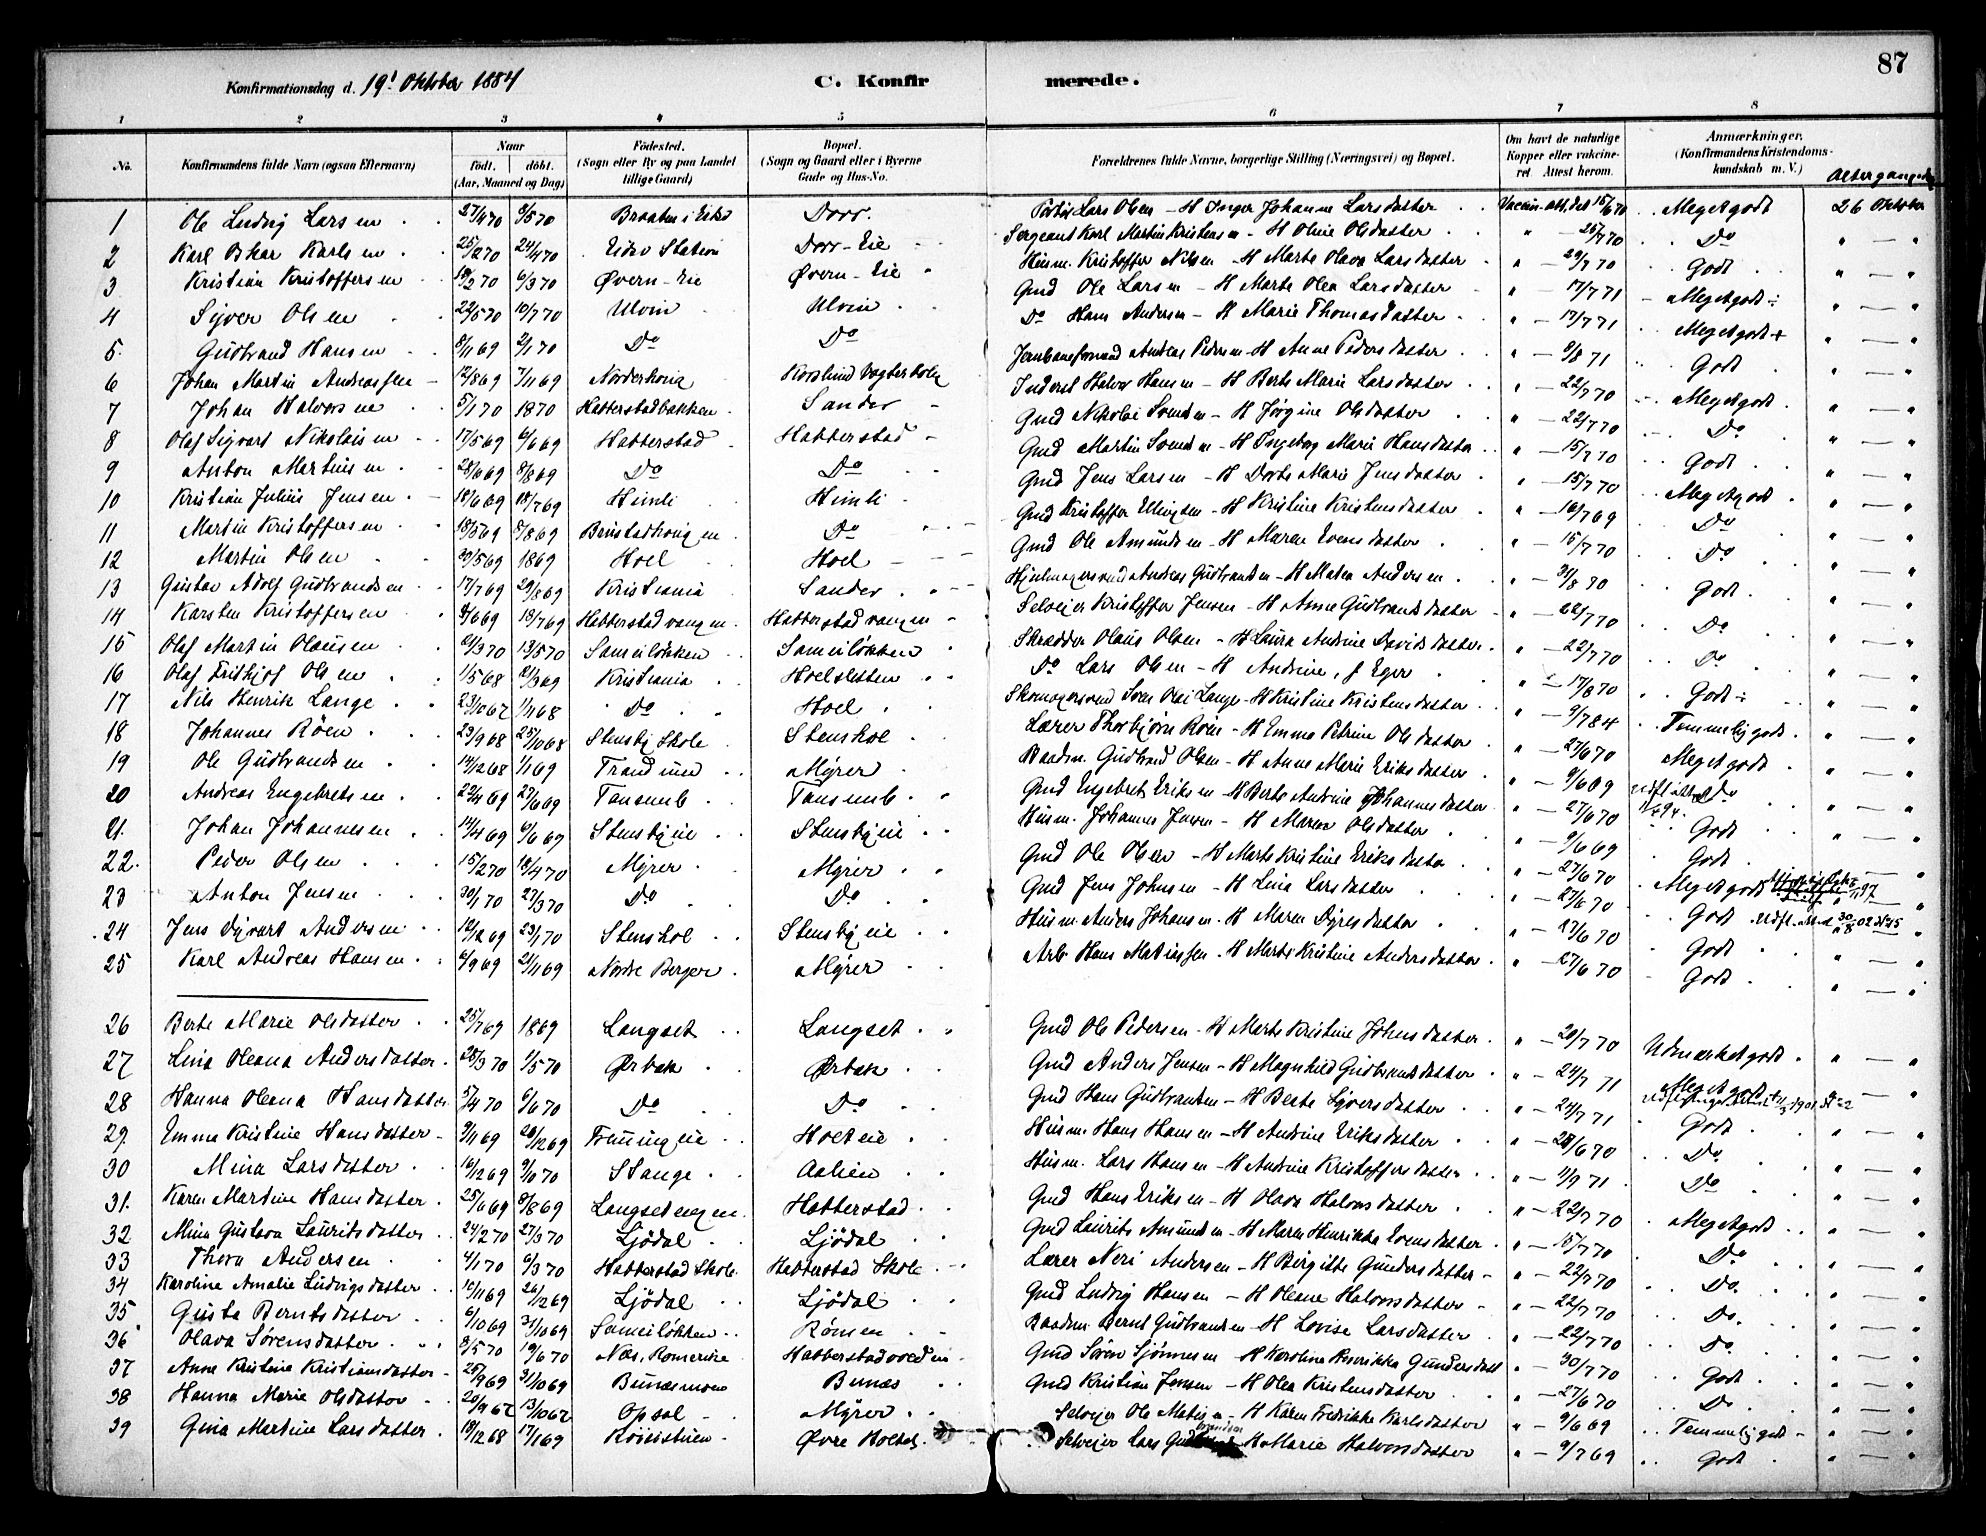 87
Konfirmationsdag d. 19' Oktober 1884
C. Konfirmerede.
1 2 3 4 5 6 7 8
No. Konfirmandens fulde Navn (ogsaa Efternavn) Naar födt. döbt. (Aar, Maaned og Dag) Födested. (Sogn eller By og paa Landet tillige Gaard) Bopæl. (Sogn og Gaard eller i Byerne Gade og Hus-No. Forældrenes fulde Navne, borgerlige Stilling (Næringsvei) og Bopæl. Om havt de naturlige Kopper eller vakcineret. Attest herom. Anmærkninger. (Konfirmandens Kristendomskundskab m. V.) Altergangsdag
1 Ole Ludvig Larsen 27/4 70 8/5 70 Braaten i Eidsv Dorr. Lars Olsen - H Inger Johanne Larsdatter Vaccin. att. dat 15/6 70 Meget godt 26 Oktober
2 Karl Oskar Karlsen 25/2 70 24/4 70 Eidsv Station Dorr-Eie Sergeant Karl Martin Kristensen - H Oline Olsdatter " - 26/7 70 Do " - "
3 Kristian Kristoffersen 18/2 70 6/3 70 Øvern-Eie Øvern-Eie Husm. Kristoffer Nilsen - H Marte Olava Larsdatter " - 29/7 70 Godt " - "
4 Syver Olsen 22/5 70 10/7 70 Ulvin Ulvin Gmd Ole Larsen - H Marte Olea Larsdatter " - 17/7 71 Meget godt ÷ " - "
5. Gudbrand Hansen 8/11 69 2/1 70 Do Do Do Hans Andersen - H Marie Thomasdatter " - 17/7 71 Meget godt + " - "
6 Johan Martin Andreassen 12/8 69 7/11 69 Norderhoug Korslund Vogterbolig Jernbaneformand Andreas Pedersen - H Anne Pedersdatter " - 8/8 71 Godt " - "
7 Johan Halvorsen 5/1 70 1870 Hatterstadbakken Sander Inderst Halvor Hansen - H Berte Marie Larsdatter " - 22/7 70 Meget godt " - "
8 Olaf Sigvart Nikolaisen 17/5 69 6/6 69 Hatterstad Hatterstad Gmd Nikolai Svendsen - H Jørgine Olsdatter " - 22/7 70 Do " - "
9 Anton Martinsen 28/6 69 8/8 69 Do Do Gmd Martin Svendsen - H Ingeborg Marie Hansdatter " - 15/7 70 Godt " - "
10 Kristian Julius Jensen 18/6 69 18/7 69 Himli Himli Gmd Jens Larsen - H Dorte Marie Jensdatter " - 15/7 70 Meget godt " - "
11 Martin Kristoffersen 18/5 69 8/8 69 Do Gmd Kristoffer Ellingsen - H Kristine Kristensdatter " - 16/7 69 Do " - "
12 Martin Olsen 30/5 69 1869 Hoel Hoel Gmd Ole Amundsen - H Maren Evensdatter " - 15/7 70 Do " - "
13 Gustav Adolf Gudbrandsen 17/7 69 29/8 69 Kristiania Sander Hjulmagersvend Andreas Gudbrandsen - H Matea Andersen " - 31/8 70 Godt " - "
14 Karsten Kristoffersen 4/6 69 18/7 69 Hatterstadvangen Hatterstadvangen Selveier Kristoffer Jensen - H Anne Gudbrandsdatter " - 22/7 70 Do " - "
15 Olaf Martin Olausen 21/3 70 13/5 70 Sameiløkken Sameiløkken Skrædder Olaus Olsen - H Laura Andrine Davidsdatter " - 22/7 70 Do " - "
16 Olaf Fridtjof Olsen 1/5 68 21/3 69 Kristiania Hoelsletten Do Lars Olsen - H Andrine, f Eger " - 17/8 70 Godt ÷ " - "
17 Nils Henrik Lange 23/10 67 1/11 68 Do Hoel Skomagersvend Sven Olai Lange - H Kristine Kristensdatter " - 9/7 84 Temmelig godt " - "
18 Johannes Röen 23/9 68 25/10 68 Stensby Skole Stenskol Lærer Thorbjørn Röen - H Emma Petrine Olsdatter " - 27/6 70 Meget godt " - "
19 Ole Gudbrandsen 14/12 68 1/1 69 Trandum Myrer Baadm. Gudbrand Olsen - H Anne Marie Eriksdatter " - 9/6 69 Do " - "
20 Andreas Engebretsen 22/4 69 27/6 69 Tansumb Tansumb Gmd Engebret Eriksen - H Berte Andrine Johannesdatter " - 27/6 70 Godt " - "
21. Johan Johannesen 14/4 69 6/6 69 Stensbyeie Stensbyeie Husm. Johannes Jensen - H Maren Olsdatter " - 9/6 69 Godt " - "
22. Peder Olsen 15/2 70 18/4 70 Myrer Myrer Gmd Ole Olsen - H Marte Kristine Eriksdatter " - 27/6 70 Meget godt " - "
23 Anton Jensen 30/1 70 27/3 70 Do Do Gmd Jens Johnsen - H Lina Larsdatter " - 27/6 70 Godt " - "
24 Jens Dyvart Andersen 12/12 69 23/1 70 Stenskol Stensbyeie Husm. Anders Johansen - H Maren Dyresdatter " - 27/6 70 Godt " - "
25 Karl Andreas Hansen 6/9 69 21/11 69 Nordre Berger Myrer Arb Hans Matiassen - H Marte Kristine Andersdatter " - 27/6 70 Godt " - "
26 Berte Marie Olsdatter 25/7 69 1869 Langset Langset Gmd Ole Pedersen - H Marte Kristine Johnsdatter " - 20/7 70 Udmærket godt " - "
27 Lina Oleana Andersdatter 28/3 70 1/5 70 Ørbæk Ørbæk Gmd Anders Jensen - H Magnhild Gudbrandsdatter " - 24/7 71 Meget godt " - "
28 Hanna Oleana Hansdatter 5/4 70 6/6 70 Do Do Gmd Hans Gudbrandsen - H Berte Syversdatter " - 24/7 71 Godt " - "
29. Emma Kristine Hansdatter 9/11 69 26/12 69 Holteie Husm. Hans Hansen - H Andrine Eriksdatter " - 28/6 70 Do " - "
30 Mina Larsdatter 16/12 69 9/10 70 Stange Aalien Husm. Lars Hansen - H Andrine Kristoffersdatter " - 11/9 71 Do " - "
31. Karen Martine Hansdatter 25/6 69 8/8 69 Langset Hatterstad Gmd Hans Eriksen - H Olava Halvorsdatter " - 22/7 70 Meget godt " - "
32 Mina Gustava Lauritsdatter 24/2 70 27/3 70 Ljödal Ljödal Gmd Laurits Amundsen - H Maren Henrikke Evensdatter " - 15/7 70 Do " - "
33 Thora Andersen 4/1 70 6/3 70 Hatterstad Skole Hatterstad Skole Lærer Neri Andersen - H Birgitte Gundersdatter " - 22/7 70 Do " - "
34 Karoline Amalie Ludvigsdatter 10/11 69 26/12 69 Ljödal Ljödal Gmd Ludvig Hansen - H Oleane Halvorsdatter " - 22/7 70 Do. " - "
35 Gusta Berntsdatter 6/10 69 31/10 69 Sameiløkken Römen Baadm. Bernt Gudbrandsen - H Lovise Larsdatter " - 22/7 70 Do " - "
36 Olava Sørensdatter 8/5 70 19/6 70 Næs, Romerike Hatterstad Gmd Sören Sjönnesen - H Karoline Henrikka Gundersdatt " - 30/7 70 Godt " - "
37 Anne Kristine Kristiansdatter 25/9 69 31/10 69 Bunæsmoen Bunæs Gmd Kristian Jensen - H Olea Kristensdatter " - 27/6 70 Do " - "
38 Hanna Marie Olsdatter 20/9 67 13/10 67 Opsal Myrer Selveier Ole Matisen - H Karen Fredrikke Karlsdatter " - 9/6 69 Temmelig godt " - "
39 Gina Martine Larsdatter 19/12 68 17/1 69 Øvre Holte Selveier Lars - H Marie Halvorsdatter " - 9/7 69 Godt " - "